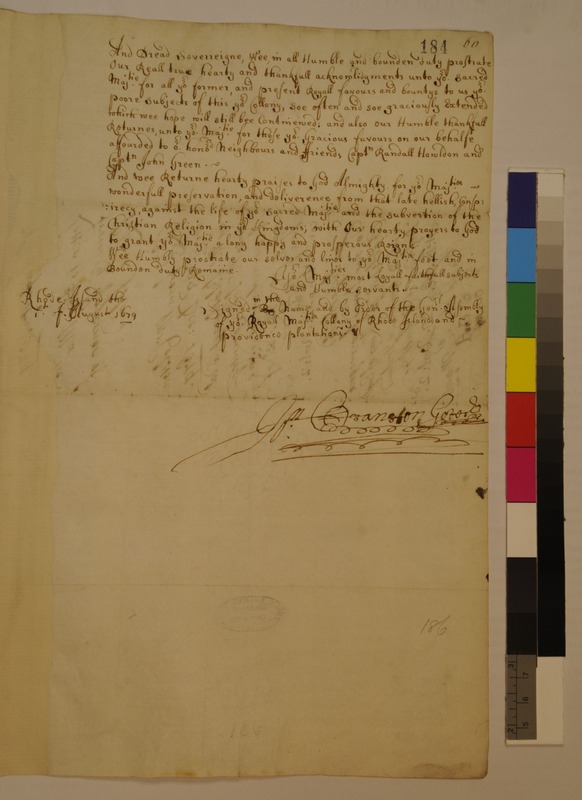 184 60
And Dread Sovereigne, Wee in all Humble and bounden duty prostrate
Our Reall true hearty and thankfull acknowlidgments unto yor. Sacred
Majtie. for all yor former, and present Royall favours and bountys to us yor
poore Subjects of this yor Collony, soe often and soe graciously Extended
which wee hope will still bee Continnewed; and also our Humble thankfull
Returnes, unto yor Majtie for those yor Gracious favours on our behalfe
afforded to or. honord Neighbours and ffriends Captn Randall Houldon and
Captn John Green.
And wee Returne hearty praises to God Almighty, for yor Majties
wonderfull preservation, and deliverence from that late hellish Conspi-
rirecy, against the life of yor Sacred Majtie and the subvertion of the
Christian Religion in yor Kingdoms, with Our hearty prayers to God
to grant yor Majtie a long happy and prosperous Reigne
Wee Humbly prostrate our selves and lives to yor Majties ffeet and in
Bounden duty Remaine
Yor Majties most Loyall faithfull subjects
and Humble servants
Rhode Island the
1st of August 1679
Signed in the Name and by Order of the Genll Assembly
of yor Royall Majties Collony of Rhode Island and
Providence plantations
Cranston Govr
186
186